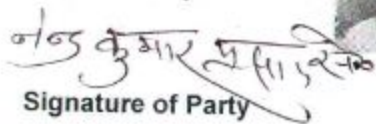 नन्द कुमार प्रसाद
Signature of Party